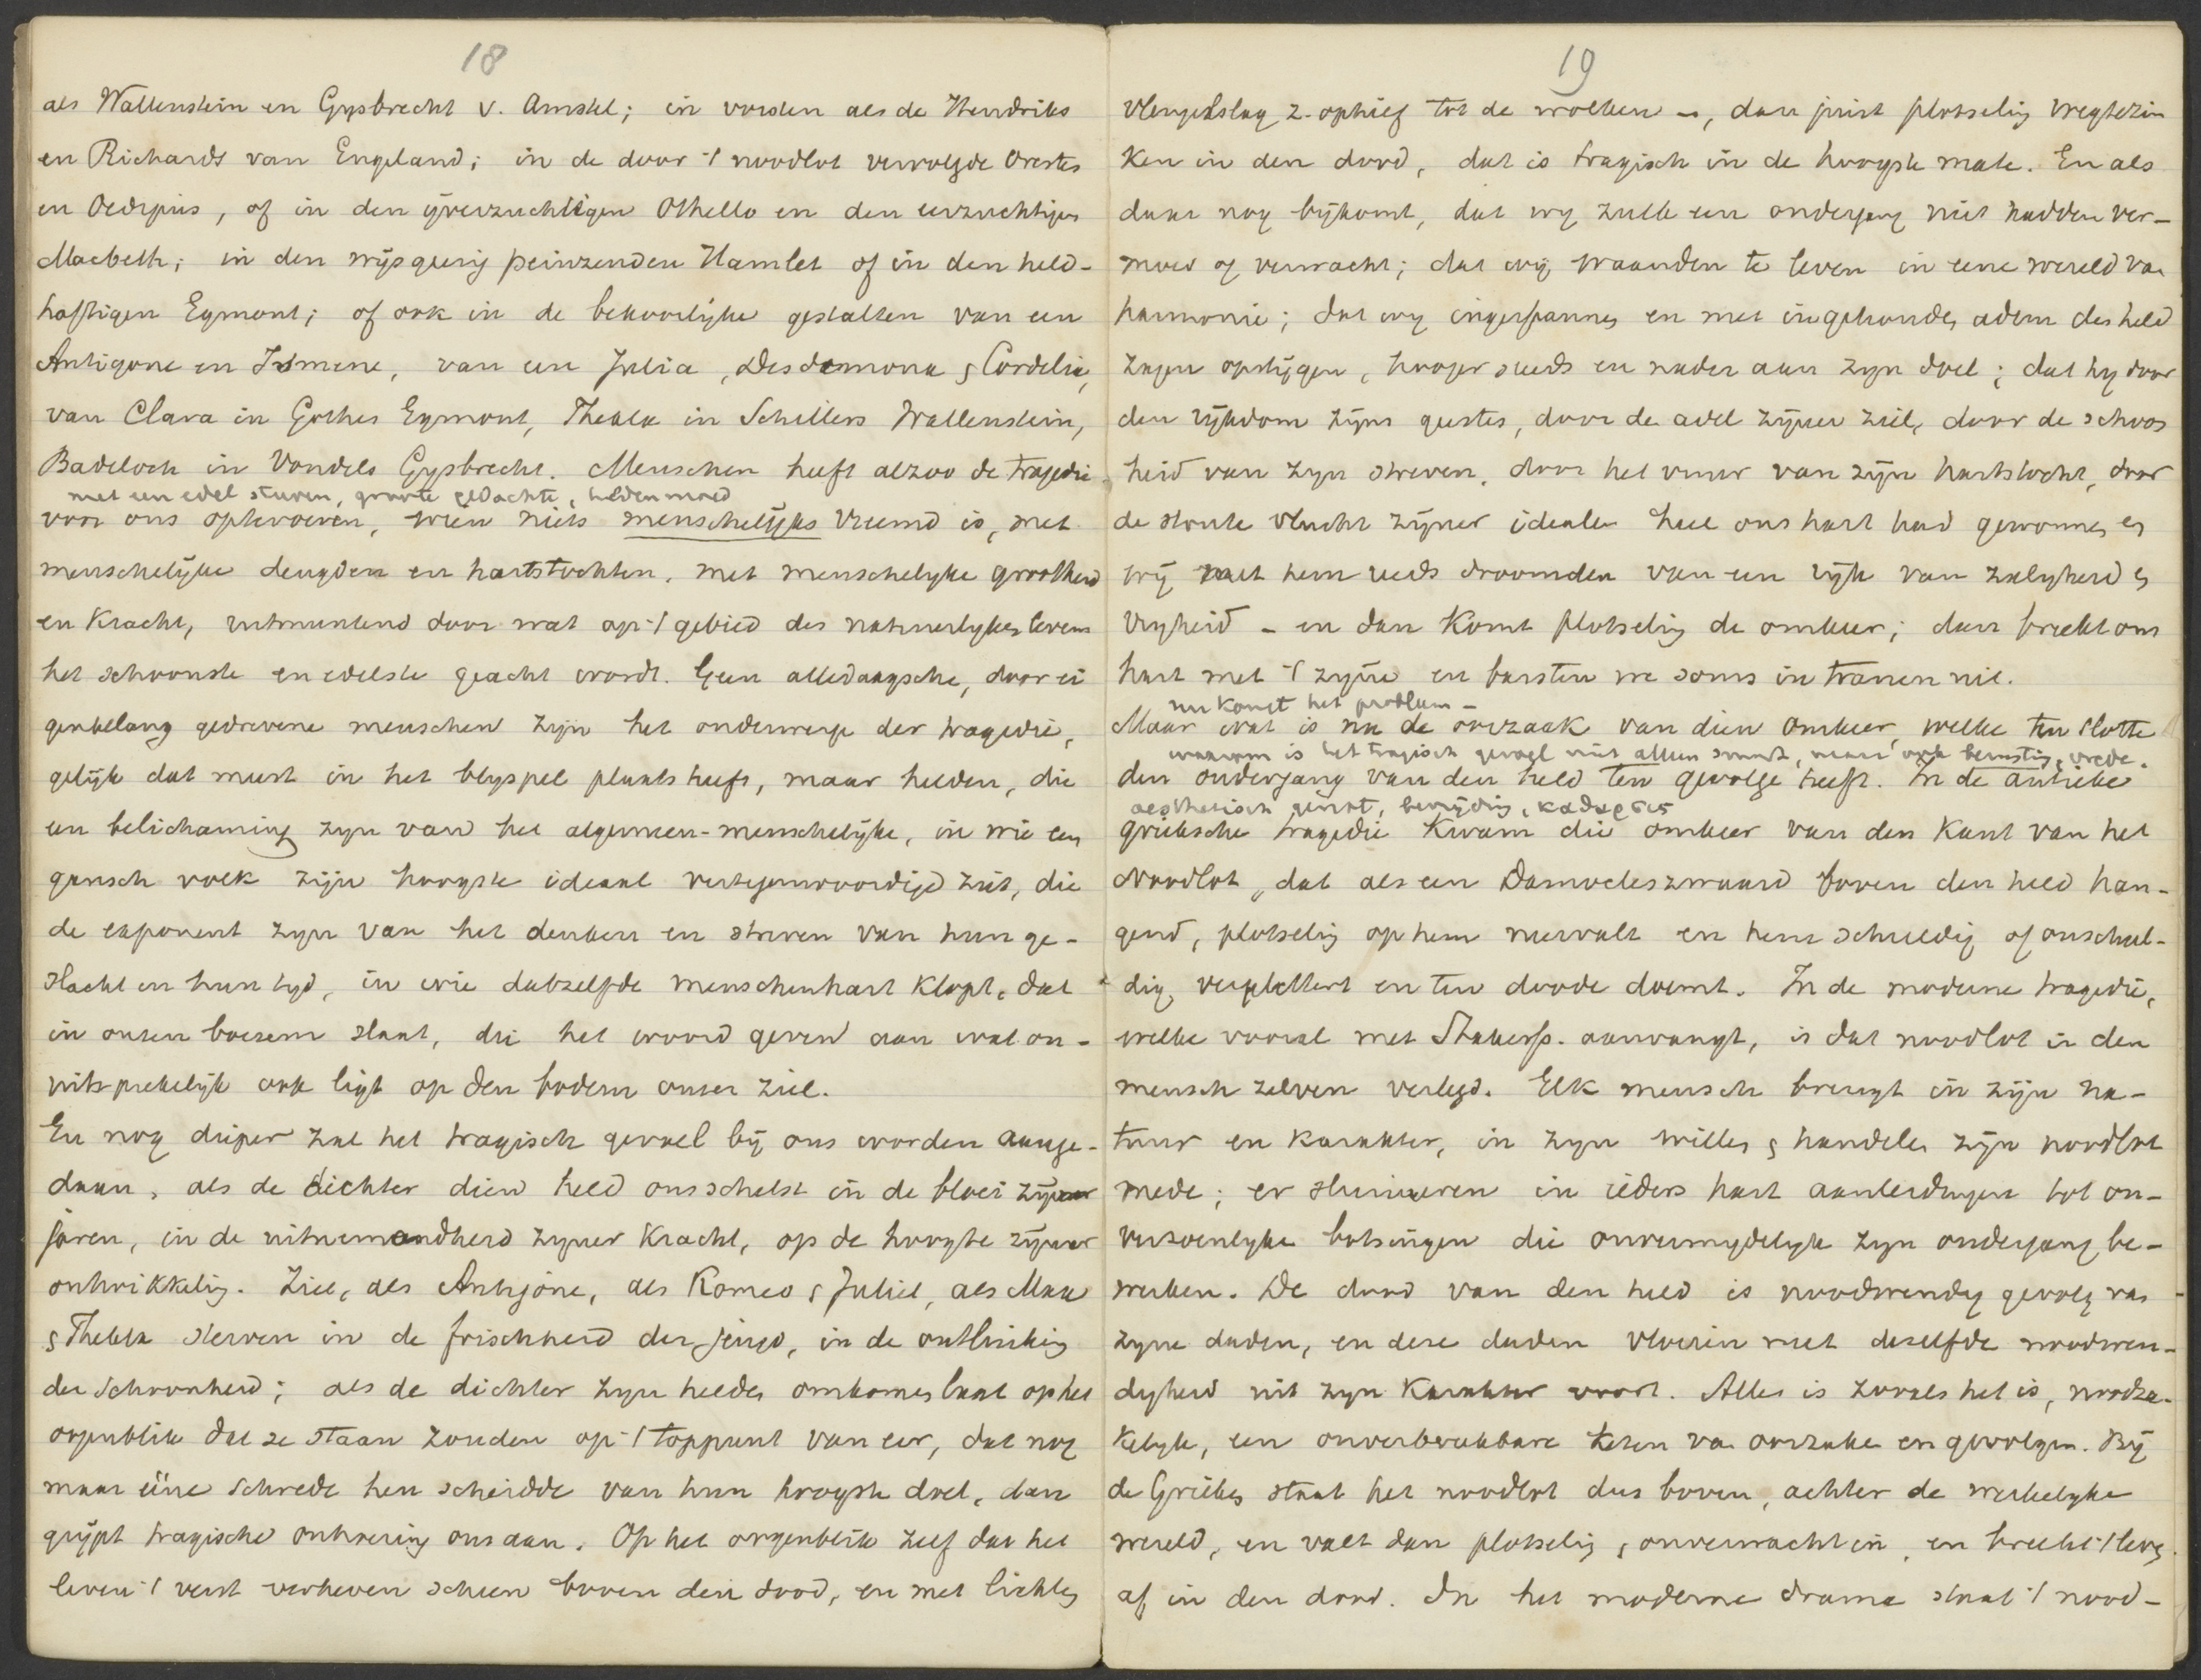 18
als Wallenstein en Gysbrecht v. Amstel; in vorsten als de Hendriks
en Richards van Engeland; in de door 't noodlot vervolgde Orestes
en Oedipus, of in den ijverzuchtigen Othello en den eerzuchtigen
Macbeth; in den wijsgeerig peinzenden Hamlet of in den held-
haftigen Egmont; of ook in de bekoorlijke gestalten van een
Antigone en Ismene, van een Julia, Desdemona & Cordelia,
van Clara in Göthes Egmont, Thekla in Schillers Wallenstein,
Badeloch in Vondels Gysbrecht. Menschen heeft alzoo de tragedie
met een edel streven, groote gedachte, heldenmoed
voor ons optevoeren, wien niets menschelijks vreemd is, met
menschelijke deugden en hartstochten, met menschelyke grootheid
en kracht, uitmuntend door wat op 't gebied des natuurlyken levens
het schoonste en edelste geacht wordt. Geen alledaagsche, door ei
genbelang gedrevene menschen zijn het onderwerp der tragedie,
gelijk dat meest in het blyspel plaats heeft, maar helden, die
een belichaming zyn van het algemeen-menschelijke, in wie een
gansch volk zijn hoogste ideaal vertegenwoordigd ziet, die
de exponent zyn van het denken en streven van hun ge-
slacht en hun tyd, in wie datzelfde menschenhart klopt, dat
in onzen boezem slaat, die het woord geven aan wat on-
uitsprekelijk ook ligt op den bodem onzer ziel.
En nog dieper zal het tragisch gevoel bij ons worden aange-
daan, als de dichter dien held ons schetst in de bloei zijner
jaren, in de uitnemendheid zyner kracht, op de hoogte zijner
ontwikkelig. Ziel, als Antigone, als Romeo & Julie, als Max
& Thekla sterven in de frischheid der jeugd, in de ontluiking
der schoonheid; als de dichter zyn helden omkomen laat op het
oogenblik dat ze staan zouden op 't toppunt van eer, dat nog
maar ééne schrede hen scheidde van hun hoogste doel, dan
grijpt tragische ontroering ons aan. Op het oogenblik zelf dat het
leven 't verst verheven scheen boven den dood, en met lichten
19
vleugelslag z. ophief tot de wolken –, dan juist plotselig wegtezin
ken in den dood, dat is tragisch in de hoogste mate. En als
daar nog bijkomt, dat wy zulk een ondergang niet hadden ver-
moed of verwacht; dat wij waanden te leven in eene wereld van
harmonie; dat wy ingespannen en met ingehouden adem des held
zagen opstijgen, hooger steeds en nader aan zyn doel; dat hy door
den rijkdom zijns geestes, door de adel zijner ziel, door de schoon
heid van zyn streven, door het vuur van zijn hartstocht, door
de stoute vlucht zijner idealen heel ons hart had gewonnen en
wij met hem reeds droomden van een rijk van zaligheid &
vryheid – en dan komt plotselig de omkeer; dan breekt ons
hart met 't zijne en barsten we soms in tranen uit.
nu komt het probleem –
Maar wat is nu de oorzaak van dien omkeer, welke ten slotte
waarom is het tragisch gevoel niet alleen smart, maar ook berusting, vrede.
den ondergang van den held ten gevolge heeft. In de antieke
aesthetisch genot, bevrijding, καθαρσις
grieksche tragedie kwam die omkeer van den kant van het
Noodlot, dat als een Damocleszwaard boven den held han-
gend, plotselig op hem neervalt en hem schuldig of onschul-
dig, verplettert en ten doode doemt. In de moderne tragedie,
welke vooral met Shakesp. aanvangt, is dat noodlot in den
mensch zelven verlegd. Elk mensch brengt in zijn na-
tuur en karakter, in zyn willen & handelen zijn noodlot
mede; er sluimeren in ieders hart aanleidingen tot on-
verzoenlyke botsingen die onvermydelyk zyn ondergang be-
werken. De dood van den held is noodwendig gevolg van
zyne daden, en deze daden vloeien met dezelfde noodwen-
digheid uit zyn karakter voort. Alles is zooals het is, noodza-
kelyk, een onverbreekbare keten van oorzaken en gevolgen. Bij
de Grieken staat het noodlot dus boven, achter de werkelyke
wereld, en valt dan plotselig, onverwacht in, en breekt 't leven
af in den dood. In het moderne drama staat 't nood-